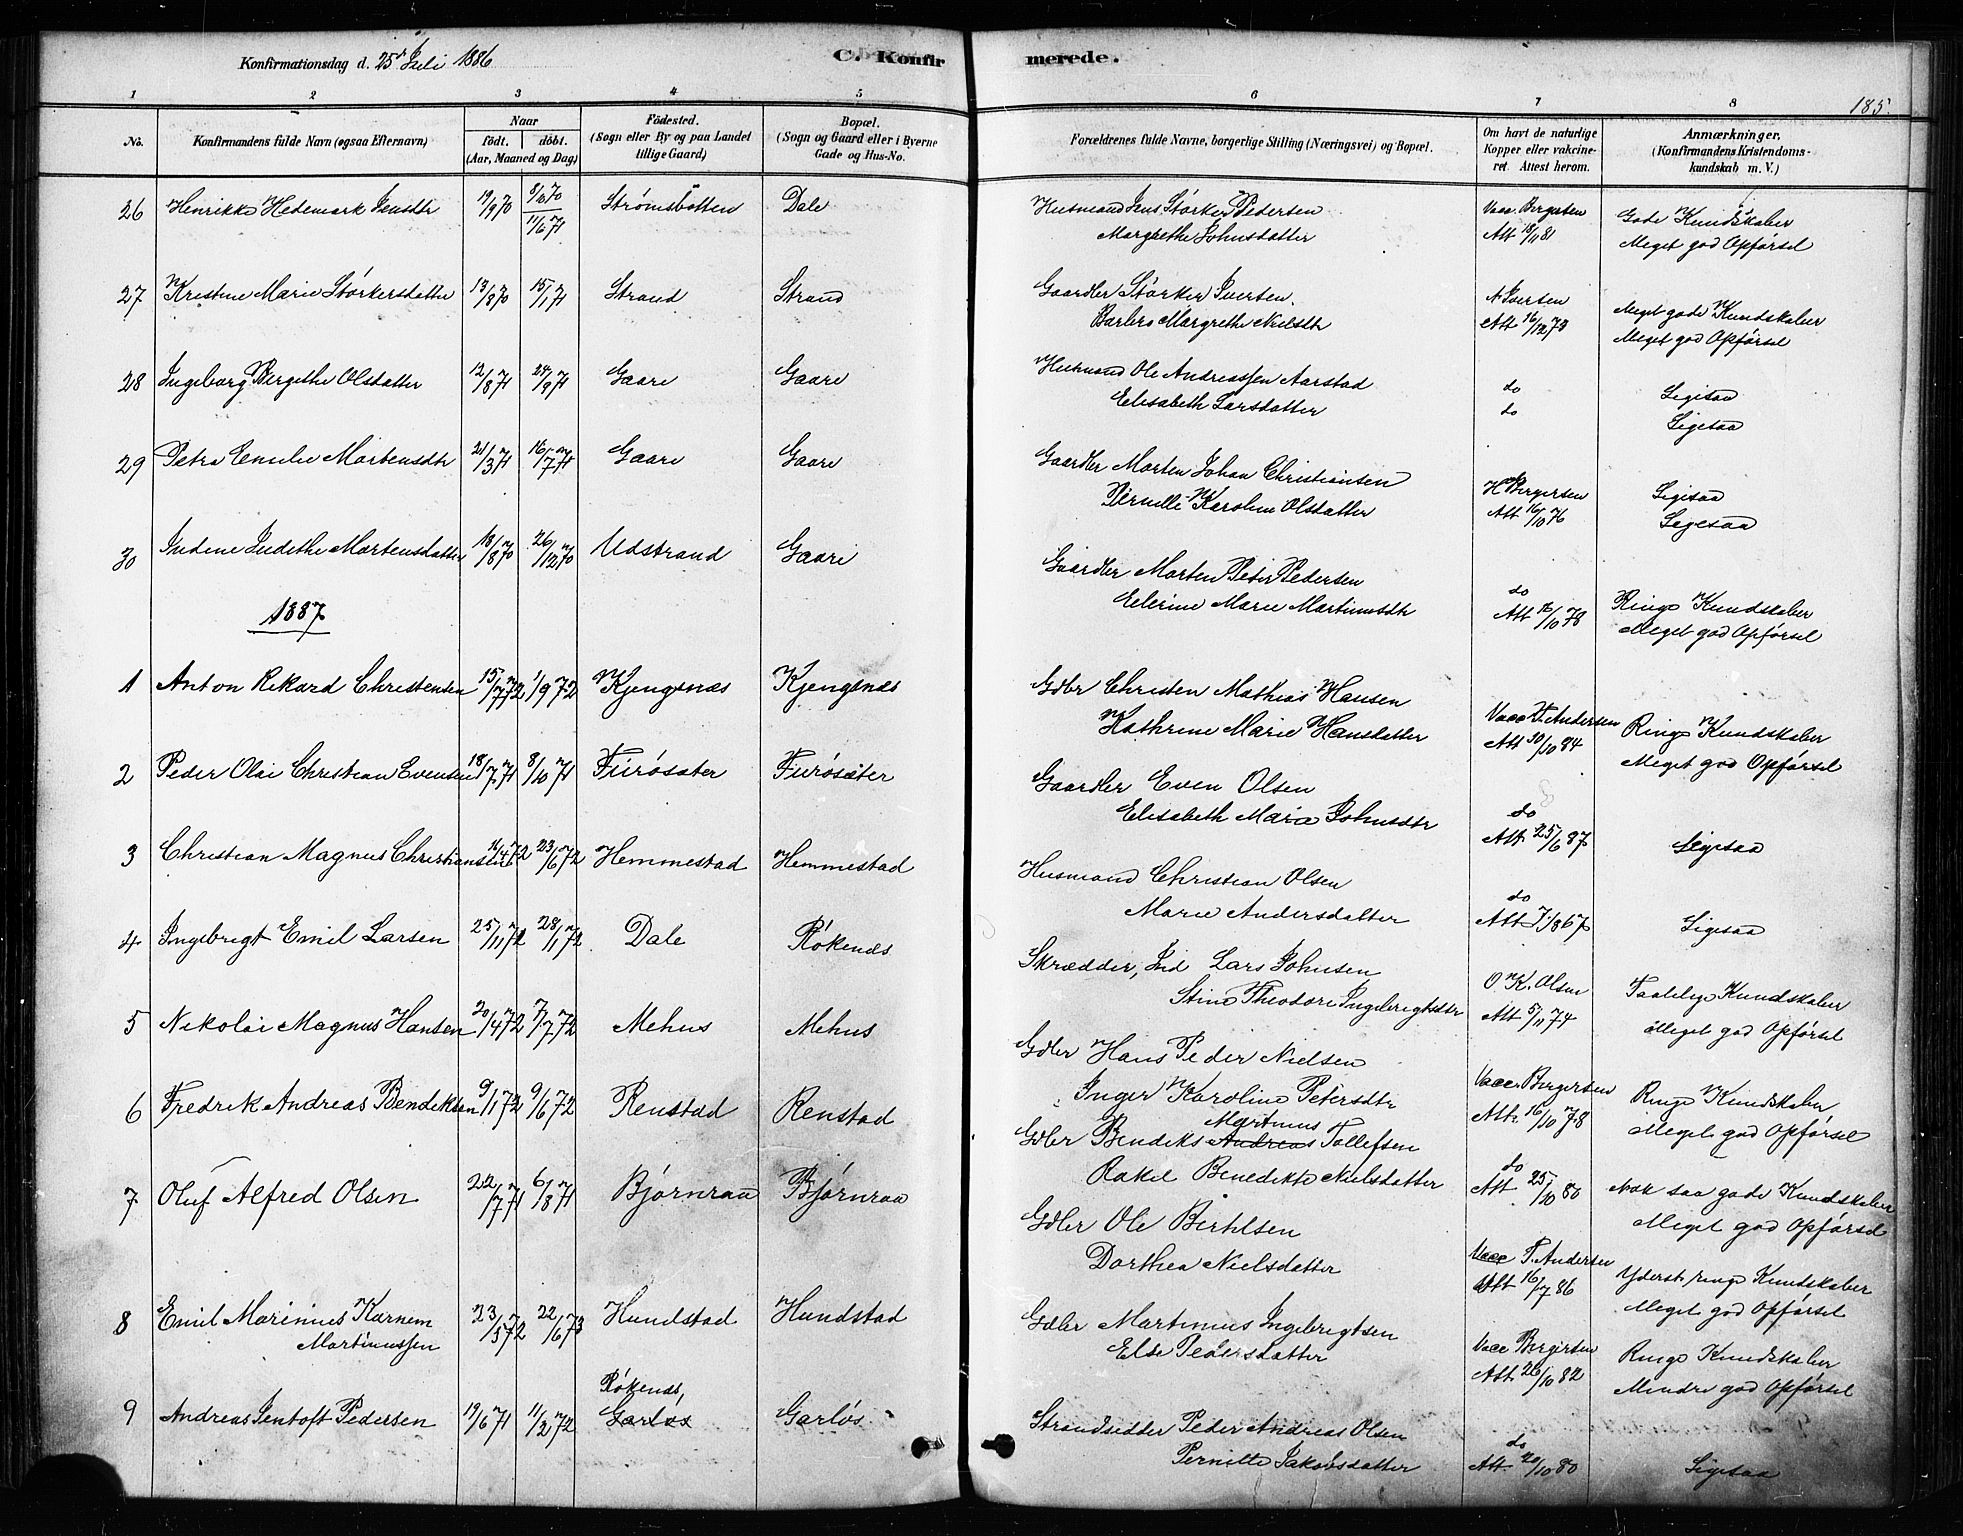 Konfirmationsdag d. 25de Juli 1886
C. Konfirmerede.
185.
1 2 3 4 5 6 7 8
No.
Konfirmandens fulde Navn (ogsaa Efternavn)
Naar
födt. döbt.
(Aar, Maaned og Dag)
Födested.
(Sogn eller By og paa Landet
tillige Gaard)
Bopæl.
(Sogn og Gaard eller i Byerne
Gade og Hus-No.
Forældrenes fulde Navne, borgerlige Stilling (Næringsvei) og Bopæl.
Om havt de naturlige
Kopper eller vakcine-
ret. Attest herom.
Anmærkninger.
(Konfirmandens Kristendoms-
kundskab m. V.)
26 Henrikke Hedemark Jensdtr 19/9 70 8/10 70 11/6 71 Strømsbotten Dale
Husmand Jens Størker Pedersen
Margrethe Johnsdatter
Vacc. Bergersen
Att 18/11 81
Gode Kundskaber
Meget god Opførsel
27 Kristine Marie Størkersdatter 13/8 70 15/1 71 Strand Strand
Gaardbr Størker Iversen.
Barbro Margrethe Nielsdtr
A. Iversen
Att 16/12 73
Meget gode Kundskaber
Meget god Opførsel
28 Ingeborg Bergithe Olsdatter 12/8 71 24/9 71 Gaare Gaare
Husmand Ole Andreassen Aarstad
Elisabeth Larsdatter
do
do
Ligesaa
Ligesaa
29 Petra Emilie Mortensdtr 21/3 71 16/7 71 Gaare Gaare
Gaardbr Morten Johan Christiansen
Pernille Karoline Olsdatter
H Bergersen
Att 16/10 76
Ligesaa
Ligesaa
30 Indine Judithe Mortensdatter 18/8 70 26/12 70 Udstrand Gaare
Gaardbr Morten Peter Pedersen
Elerine Marie Martinusdtr
do
Att 16/10 78
Ringe Kundskaber
Meget god Opførsel
1887
1 Anton Rikard Christensen 15/7 72 1/9 72 Kjengsnæs Kjengsnæs
Gdbr Christen Mathias Hansen
Kathrine Marie Hansdatter
Vacc T. Andersen
Att 30/10 84
Ringe Kundskaber
Meget god Opførsel
2 Peder Olai Christian Evensen 18/7 71 8/10 71 Furøsæter Furøsæter
Gaardbr Even Olsen
Elisabeth Maria Johnsdtr
do
Att 25/6 87
Ligesaa
3 Christian Magnus Christiansen 11/4 72 23/6 72 Hemmestad Hemmestad
Husmand Christian Olsen
Marie Andersdatter
do
Ligesaa
4 Ingebrigt Emil Larsen 25/11 72 28/1 72 Dale Røkenæs
Skrædder, Ind Lars Johnsen
Stine Theodore Ingebrigtsdtr
O. K. Olsen
Att 5/11 74
Taalelige Kundskaber
Meget god Opførsel
5 Nikolai Magnus Hansen 20/4 72 7/7 72 Mehus Mehus
Gdbr Hans Peder Nielsen
Inger Karoline Petersdtr
Vacc. Bergersen
Att. 16/10 78
Ringe Kundskaber
Meget god Opførsel
6 Fredrik Andreas Bendiksen 9/1 72 9/6 72 Renstad Renstad
Martinus
Gdbr Bendiks Andreas Tollefsen
Rakel Benedikte Nielsdatter
do
Att 25/10 80
Nok saa gode Kundskaber
Meget god Opførsel
7 Oluf Alfred Olsen 22/7 71 6/8 71 Bjørnraa Bjørnraa
Gdbr Ole Berthelsen
Dorthea Nielsdatter
Vacc T. Andersen
Att 16/7 86
Yderst ringe Kundskaber
Meget god Opførsel
8 Emil Marinius Karnem 23/5 72 22/6 73 Hundstad Hundstad
Martinussen
Gdbr Martinus Ingebrigtsen
Else Pedersdatter
Vacc Bergersen
Att 26/10 82
Ringe Kundskaber
Mindre god Opførsel
9 Andreas Jentoft Pedersen 19/6 71 11/2 72 Røkenæs, Garløs Garløs
Strandsidder Peder Andreas Olsen
Pernille Jakobsdatter
do
Att. 20/10 80
Ligesaa